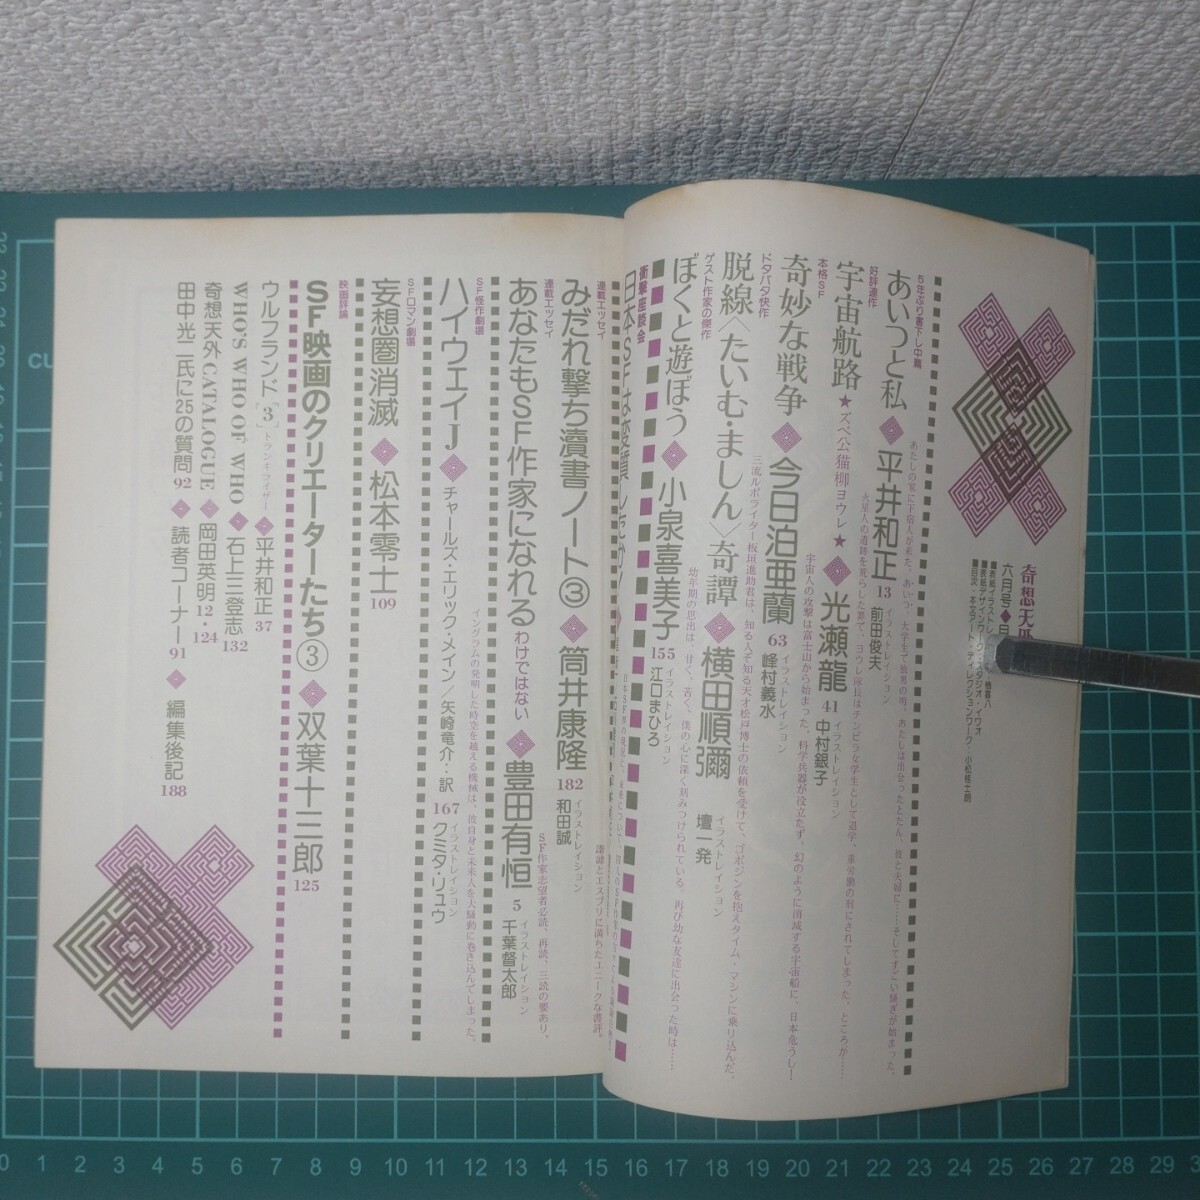 奇想天
六月号◆
5年ぶり書下し中篇
あいつと私◆平井和正 13
イラストレイション
前田俊夫
好評連作
宇宙航路★ズベ公猫柳ヨウレ★◆光瀬龍 41
イラストレイション
中村銀子
火星人の遺跡を荒らした罪で、ヨウレ隊長はチンピラ女学生として退学、重労働の刑にされてしまった。ところが……
本格SF
奇妙な戦争◆今日泊亜蘭 63
イラストレイション
峰村義水
宇宙人の攻撃は富士山から始まった。科学兵器が役立たず、幻のように消滅する宇宙船に、日本危うし!
ドタバタ快作
脱線〈たいむ・ましん〉奇譚◆横田順彌
イラストレイション
壇一発
三流ルポライター板垣進助君は、知る人ぞ知る天才松戸博士の依頼を受けて、ゴボジンを抱えタイム・マシンに乗り込んだ。
ゲスト作家の傑作
ぼくと遊ぼう◆小泉喜美子 155
イラストレイション
江口まひろ
幼年期の思出は、甘く、苦く、僕の心に深く刻みつけられている。再び幼な友達に出会った時は……
衝撃座談会
日本SFは変質したか
連載エッセイ
みだれ撃ち瀆書ノート③◆筒井康隆 182
イラストレイション
和田誠
諧謔とエスプリに満ちたユニークな書評。
連載エッセイ
あなたもSF作家になれるわけではない◆豊田有恒 5
イラストレイション
千葉督太郎
SF作家志望者必読、再読、三読の要あり。
SF怪作劇場
ハイウエイJ◆チャールズ・エリック・メイン/矢崎竜介:訳 167
イラストレイション
クミタ・リュウ
イングラムの発明した時空を越える機械は、彼自身と未来人を大騒動に巻き込んでしまった。
SFロマン劇場
妄想圏消滅◆松本零士 109
映画評論
SF映画のクリエーターたち③◆双葉十三郎 125
ウルフランド[3]トランキライザー◆平井和正 37
WHO'S WHO OF WHO◆石上三登志 132
奇想天外 CATALOGUE◆岡田英明 12・124
田中光二氏に25の質問 92◆読者コーナー 91◆編集後記 188
0 1 2 3 4 5 6 7 8 9 10 11 12 13 14 15 16 17 18 19 20 21 22 23 24 25 26 27 28 29